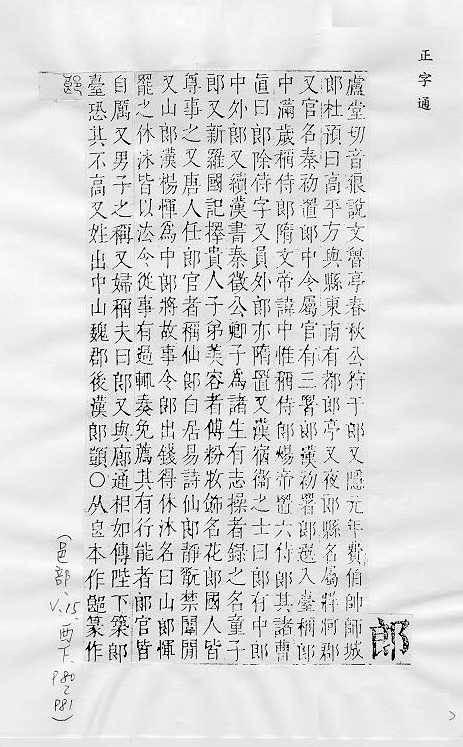 正字通
郎
盧堂切音狼說文魯亭春秋公狩于郎又隱元年費伯帥師城
郎杜預曰高平方與縣東南有郁郎亭又夜郎縣名屬牂牁郡
又官名秦初置郎中令屬官有三署郎漢初署郎選入臺稱郎
中滿歲稱侍郎隋文帝諱中惟稱侍郎煬帝置六侍郎其諸曹
眞曰郎除侍字又員外郎亦隋置又漢宿衞之士曰郎有中郎
中外郎又續漢書泰徵公卿子爲諸生有志操者錄之名童子
郎又新羅國記擇貴人子弟美容者傅粉妝飾名花郎國人皆
尊事之又唐人任郎官者稱仙郎白居易詩仙郎靜翫禁闈閒
又山郎漢楊惲爲中郎將故事令郎出錢得休沐名曰山郎惲
罷之休沐皆以法令從事有過輒奏免薦其有行能者郎官皆
自厲又男子之稱又婦稱夫曰郎又與廊通相如傳陛下築郎
臺恐其不高又姓出中山魏郡後漢郎顗○从皀本作篆作
(邑部、V.15、酉下、P80之P81)